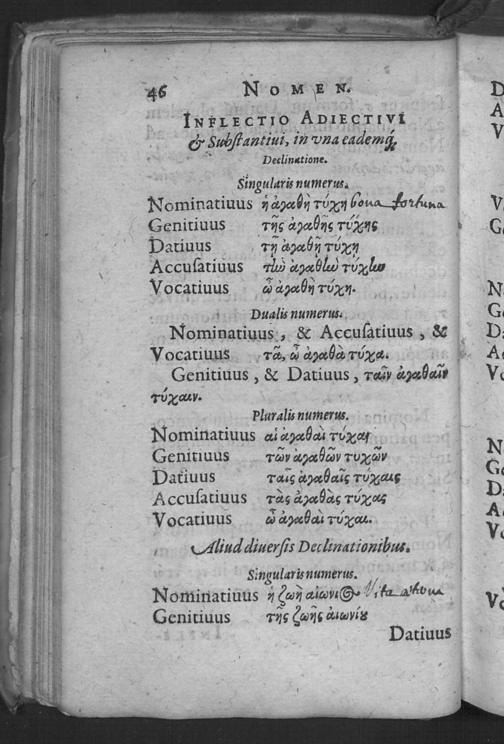 46 NOMEN.
INFLECTIO ADIECTIVI
& Substantiui, in vna eademq́;
Declinatione.
Singularis numerus.
Nominatiuus ἡ ἀγαθὴ τύχη bona fortuna
Genitiuus τῆς ἀγαθῆς τύχης
Datiuus τῇ ἀγαθῇ τύχῃ
Accusatiuus τὴν ἀγαθὴν τύχην
Vocatiuus ὦ ἀγαθὴ τύχη.
Dualis numerus.
Nominatiuus, & Accusatiuus, &
Vocatiuus τὰ, ὦ ἀγαθὰ τύχα.
Genitiuus, & Datiuus, ταῖν ἀγαθαῖν
τύχαιν.
Pluralis numerus.
Nominatiuus αἱ ἀγαθαὶ τύχαι
Genitiuus τῶν ἀγαθῶν τυχῶν
Datiuus ταῖς ἀγαθαῖς τύχαις
Accusatiuus τὰς ἀγαθὰς τύχας
Vocatiuus ὦ ἀγαθαὶ τύχαι.
Aliud diuersis Declinationibus.
Singularis numerus.
Nominatiuus ἡ ζωὴ αἰώνιος Vita
Genitiuus τῆς ζωῆς αἰωνίου
Datiuus